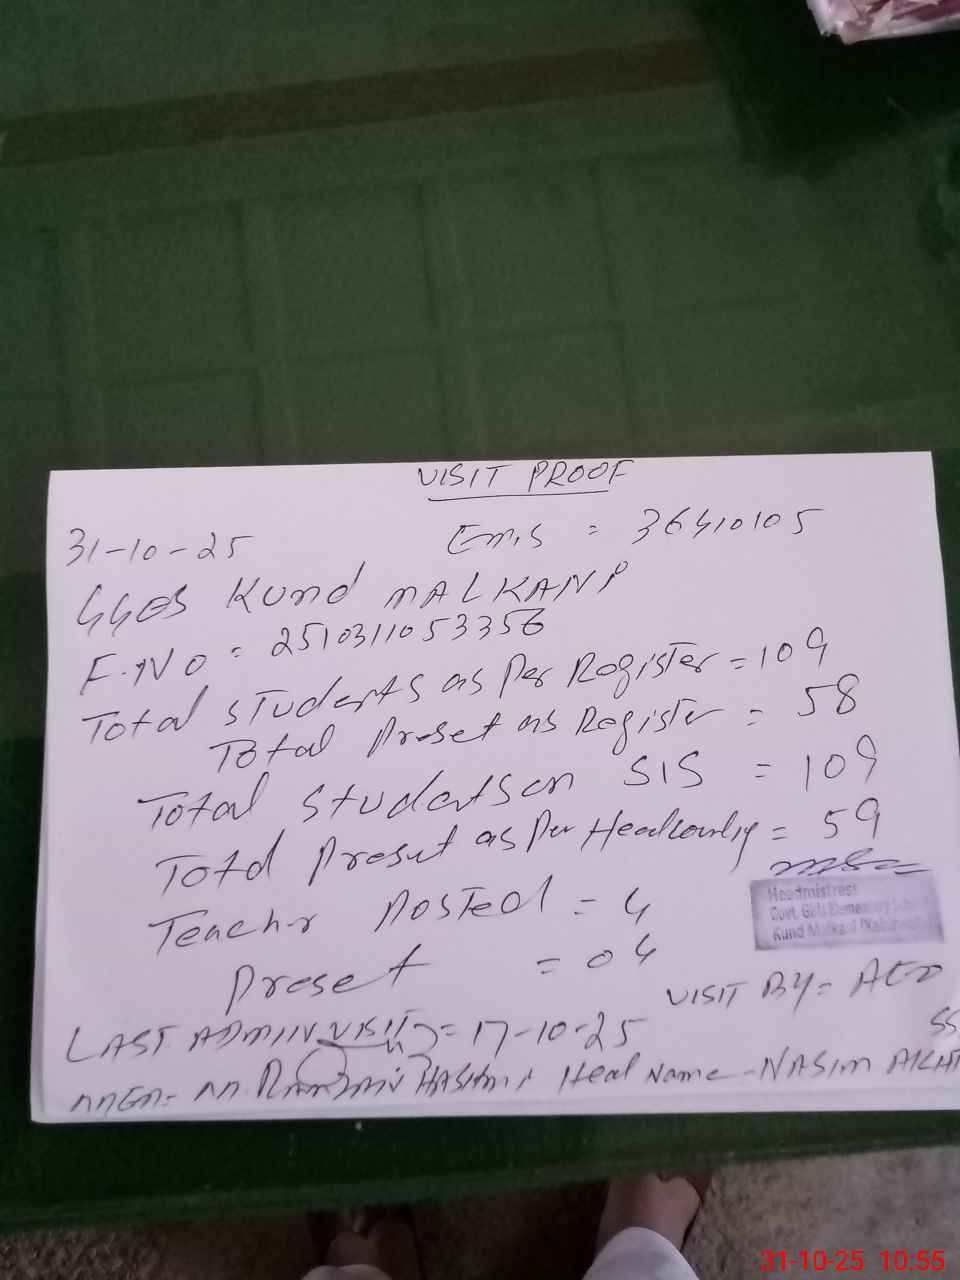 VISIT PROOF
31-10-25 Emis = 36410105
GGES Kund MALKANI
F.NO = 2510311053356
Total students as Per Register = 109
Total Preset as Register = 58
Total Students on SIS = 109
Total Preset as Per Headcounting = 59
Teacher Posted = 4
Headmistress
Govt. Girls Elementary School
Kund Malkani
Preset = 04
VISIT By = AEO
LAST ADMIN VISIT = 17-10-25
SS
M. RAMZAN HASHMI Head Name - NASIM AKHT
31-10-25 10:55